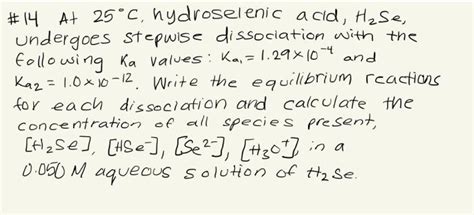 #14 At 25°C, hydroselenic acid, H₂Se,
undergoes stepwise dissociation with the
following Ka values: Ka₁ = 1.29×10⁻⁴ and
Ka₂ = 1.0×10⁻¹². Write the equilibrium reactions
for each dissociation and calculate the
concentration of all species present,
[H₂Se], [HSe⁻], [Se²⁻], [H₃O⁺], in a
0.050 M aqueous solution of H₂Se.